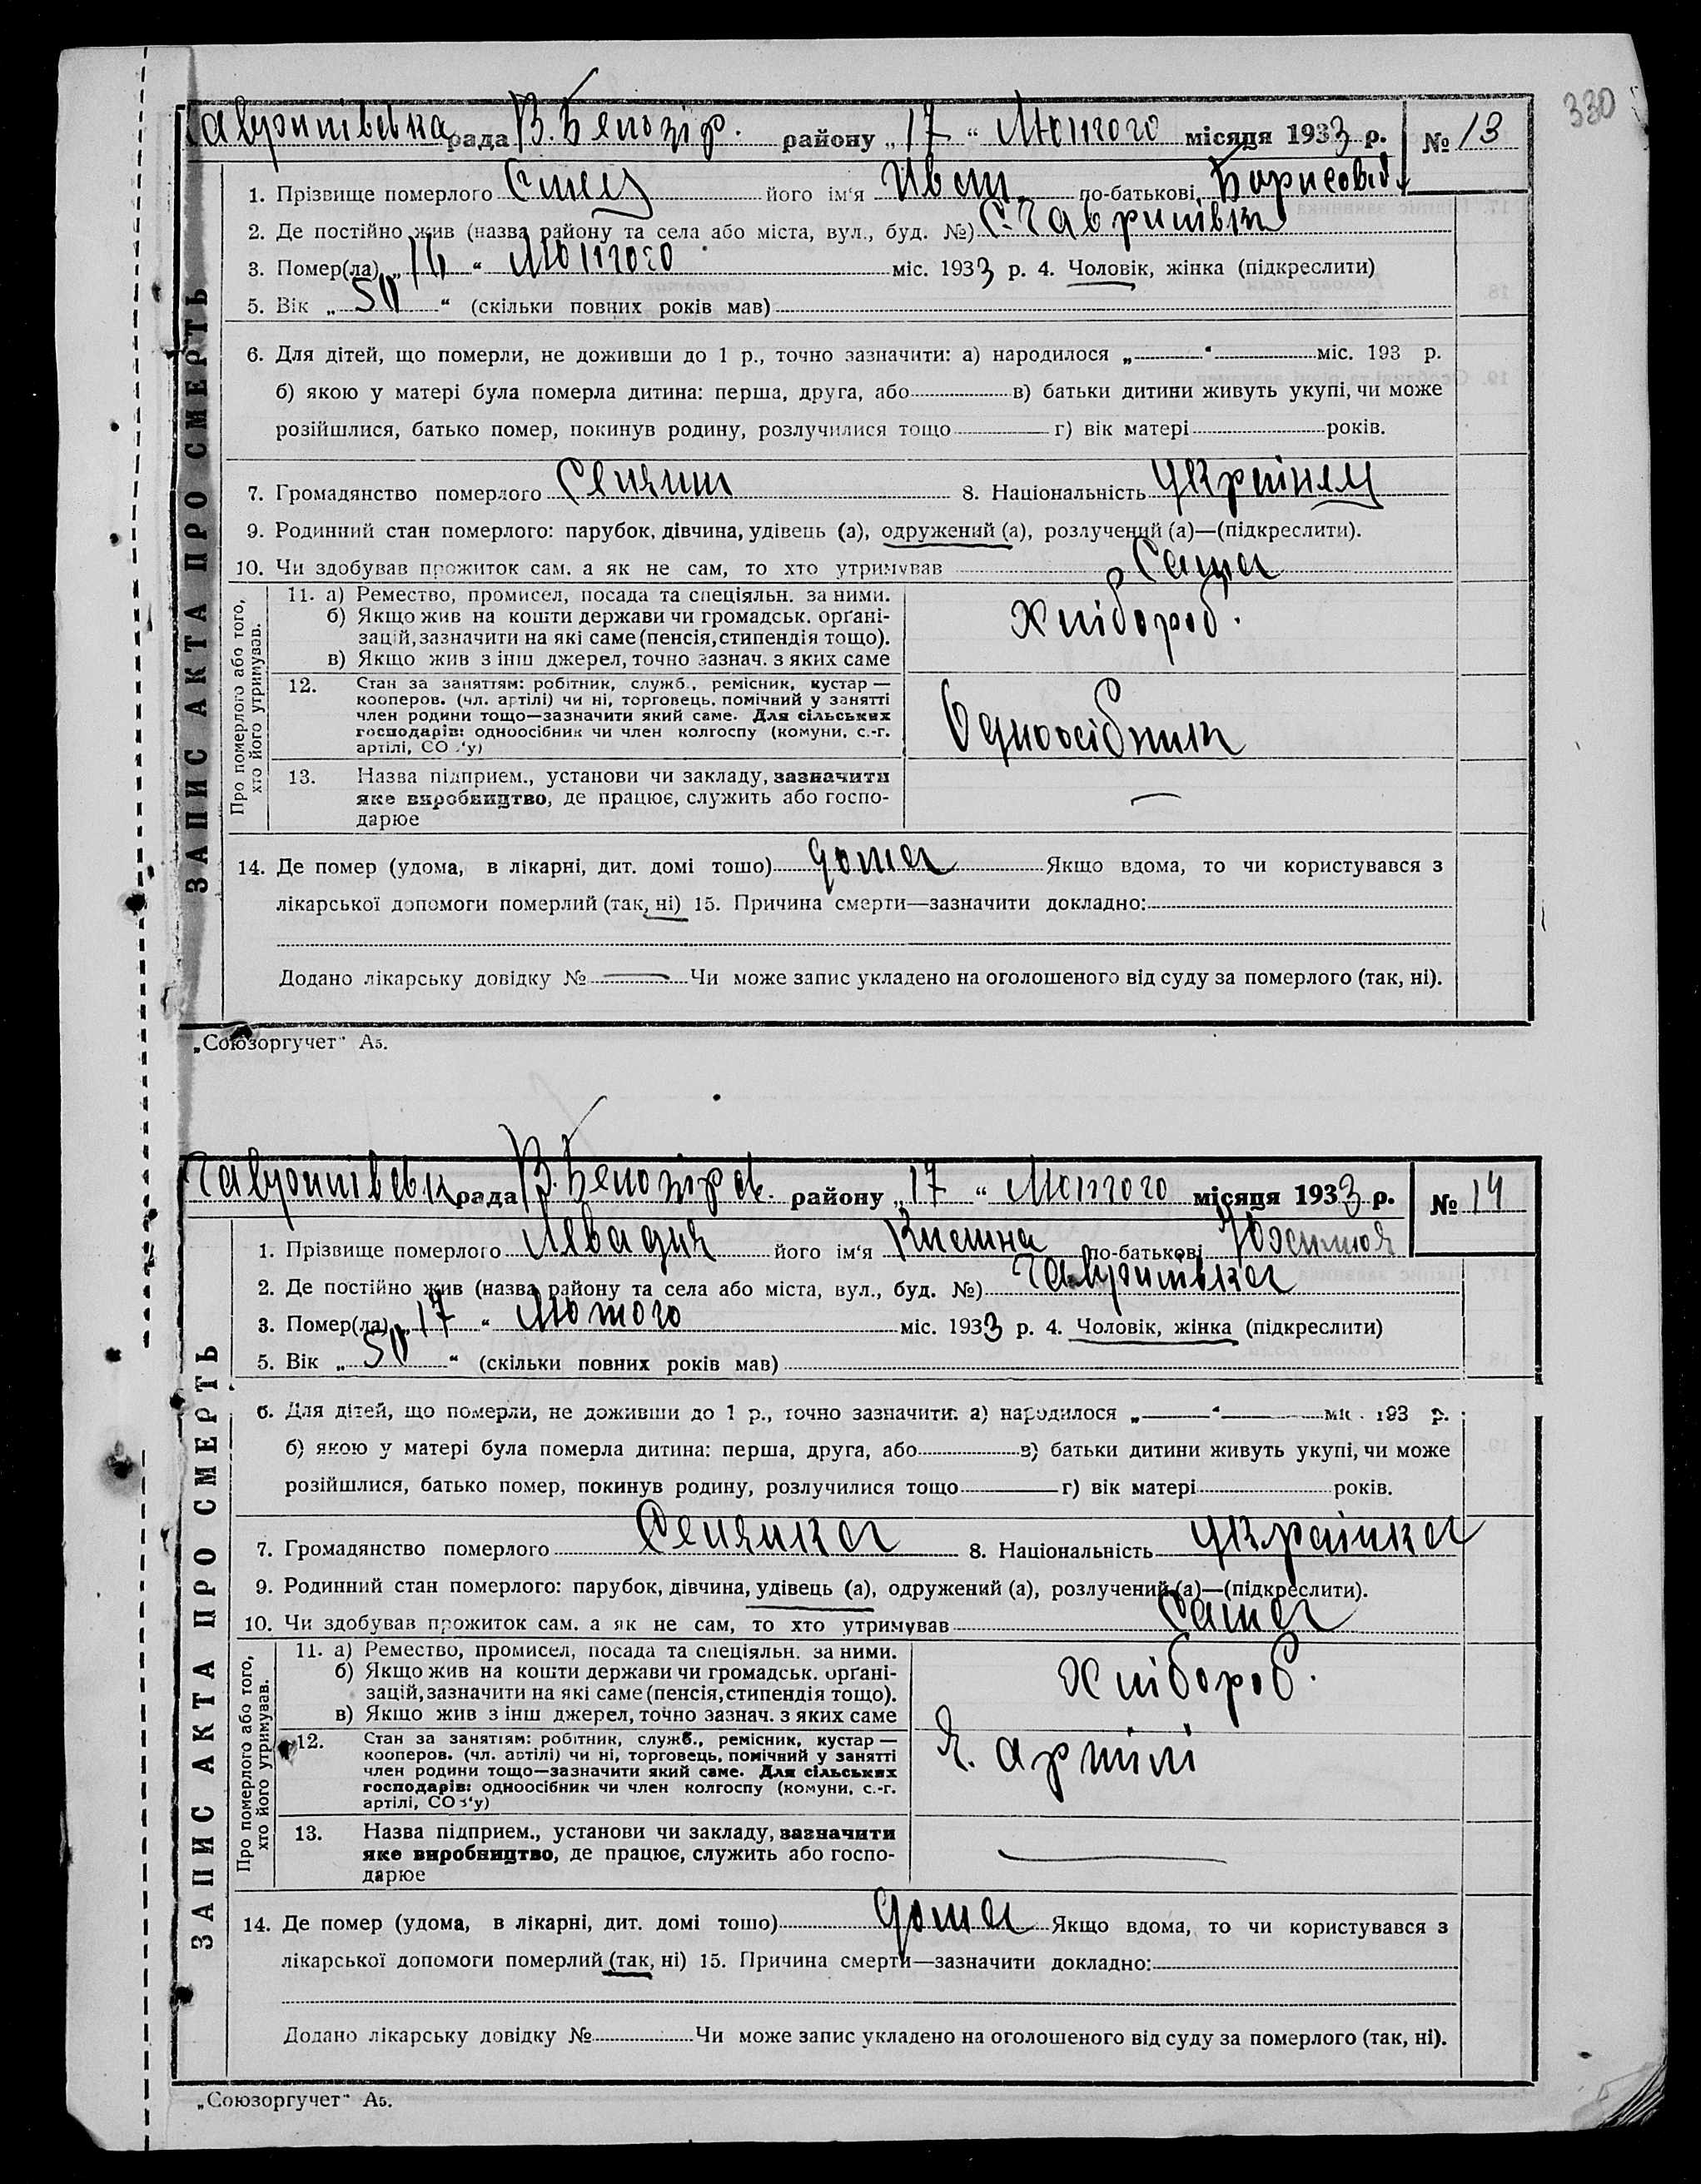 330
Гаврилівська рада В. Білозір. району „17“ Лютого місяця 1933 р. № 13
1. Прізвище померлого його ім‘я Іван по-батькові Борисовіч
2. Де постійно жив (назва району та села або міста, вул., буд. №) С. Гаврилівка
3. Помер(ла) „16“ Лютого міс. 1933 р. 4. Чоловік, жінка (підкреслити)
5. Вік „50“ (скільки повних років мав)
6. Для дітей, що померли, не доживши до 1 р., точно зазначити: а) народилося „ “ міс. 193 р.
б) якою у матері була померла дитина: перша, друга, або в) батьки дитини живуть укупі, чи може
розійшлися, батько помер, покинув родину, розлучилися тощо г) вік матері років.
7. Громадянство померлого Селянин 8. Національність Українець
9. Родинний стан померлого: парубок, дівчина, удівець (а), одружений (а), розлучений (а)—(підкреслити).
10. Чи здобував прожиток сам. а як не сам, то хто утримував
Про померлого або того, хто його утримував.
11. а) Ремество, промисел, посада та спеціяльн. за ними.
б) Якщо жив на кошти держави чи громадськ. органі-
зацій, зазначити на які саме (пенсія, стипендія тощо).
в) Якщо жив з інш джерел, точно зазнач. з яких саме
Хлібороб.
12. Стан за заняттям: робітник, служб., ремісник, кустар —
кооперов. (чл. артілі) чи ні, торговець, помічний у занятті
член родини тощо—зазначити який саме. Для сільських
господарів: одноосібник чи член колгоспу (комуни, с.-г.
артілі, СО з‘у)
Одноосібник
13. Назва підприєм., установи чи закладу, зазначити
яке виробництво, де працює, служить або госпо-
дарює
—
14. Де помер (удома, в лікарні, дит. домі тощо) дома Якщо вдома, то чи користувався з
лікарської допомоги померлий (так, ні) 15. Причина смерти—зазначити докладно:
Додано лікарську довідку № — Чи може запис укладено на оголошеного від суду за померлого (так, ні).
ЗАПИС АКТА ПРО СМЕРТЬ
„Союзоргучет“ А5.
Гаврилівськ рада В. Білозірсь. району „17“ Лютого місяця 1933 р. № 14
1. Прізвище померлого його ім‘я по-батькові
2. Де постійно жив (назва району та села або міста, вул., буд. №) Гаврилівка
3. Помер(ла) „17“ Лютого міс. 1933 р. 4. Чоловік, жінка (підкреслити)
5. Вік „50“ (скільки повних років мав)
6. Для дітей, що померли, не доживши до 1 р., точно зазначити: а) народилося „ “ міс. 193 р.
б) якою у матері була померла дитина: перша, друга, або в) батьки дитини живуть укупі, чи може
розійшлися, батько помер, покинув родину, розлучилися тощо г) вік матері років.
7. Громадянство померлого Селянка 8. Національність Українка
9. Родинний стан померлого: парубок, дівчина, удівець (а), одружений (а), розлучений (а)—(підкреслити).
10. Чи здобував прожиток сам. а як не сам, то хто утримував Сама
Про померлого або того, хто його утримував.
11. а) Ремество, промисел, посада та спеціяльн. за ними.
б) Якщо жив на кошти держави чи громадськ. органі-
зацій, зазначити на які саме (пенсія, стипендія тощо).
в) Якщо жив з інш джерел, точно зазнач. з яких саме
Хлібороб.
12. Стан за заняттям: робітник, служб., ремісник, кустар —
кооперов. (чл. артілі) чи ні, торговець, помічний у занятті
член родини тощо—зазначити який саме. Для сільських
господарів: одноосібник чи член колгоспу (комуни, с.-г.
артілі, СО з‘у)
Ч. артілі
13. Назва підприєм., установи чи закладу, зазначити
яке виробництво, де працює, служить або госпо-
дарює
—
14. Де помер (удома, в лікарні, дит. домі тощо) дома Якщо вдома, то чи користувався з
лікарської допомоги померлий (так, ні) 15. Причина смерти—зазначити докладно:
Додано лікарську довідку № Чи може запис укладено на оголошеного від суду за померлого (так, ні).
ЗАПИС АКТА ПРО СМЕРТЬ
„Союзоргучет“ А5.